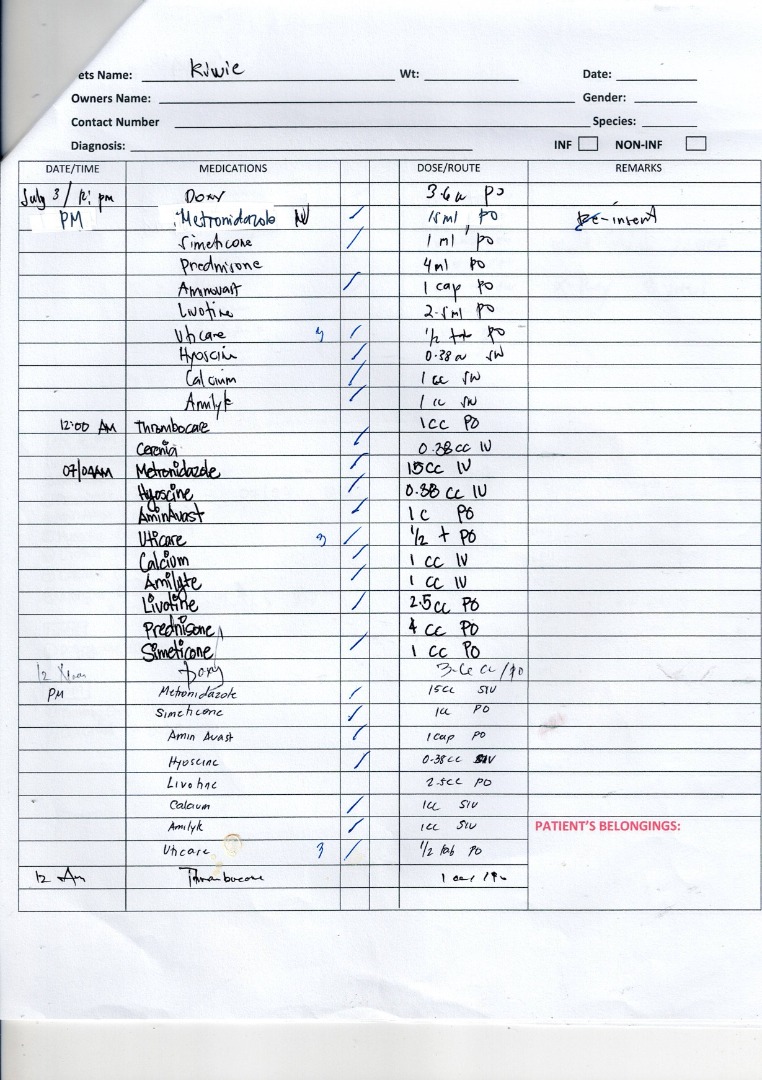 ets Name: Kiwie Wt: Date:
Owners Name: Gender:
Contact Number Species:
Diagnosis: INF NON-INF
DATE/TIME MEDICATIONS DOSE/ROUTE REMARKS
July 3 / 12: pm Doxy 3.6 PO
PM Metronidazole IV 15ml, PO Re-insert
Simeticone 1 ml PO
Prednisone 4ml PO
Aminavast 1 cap PO
Livotine 2.5ml PO
Uticare 3 1/2 PO
Hyoscine 0.38
Calcium 1 cc
Amilyte 1 cc
12:00 AM Thrombocare 1cc PO
Cerenia 0.38cc IV
07/04AM Metronidazole 15cc IV
Hyoscine 0.38 cc IV
AminAvast 1 c PO
Uticare 3 1/2 t PO
Calcium 1 cc IV
Amilyte 1 cc IV
Livotine 2.5cc PO
Prednisone 4 cc PO
Simeticone 1 cc PO
12 Doxy 3.6 cc / po
PM Metronidazole 15cc SIV
Simeticone 1cc PO
Amin Avast 1cap PO
Hyoscine 0.38cc SIV
Livotine 2.5cc PO
Calcium 1cc SIV
Amilyte 1cc SIV
PATIENT'S BELONGINGS:
Uticare 3 1/2 tab PO
12 Am Thrombocare 1 / Po